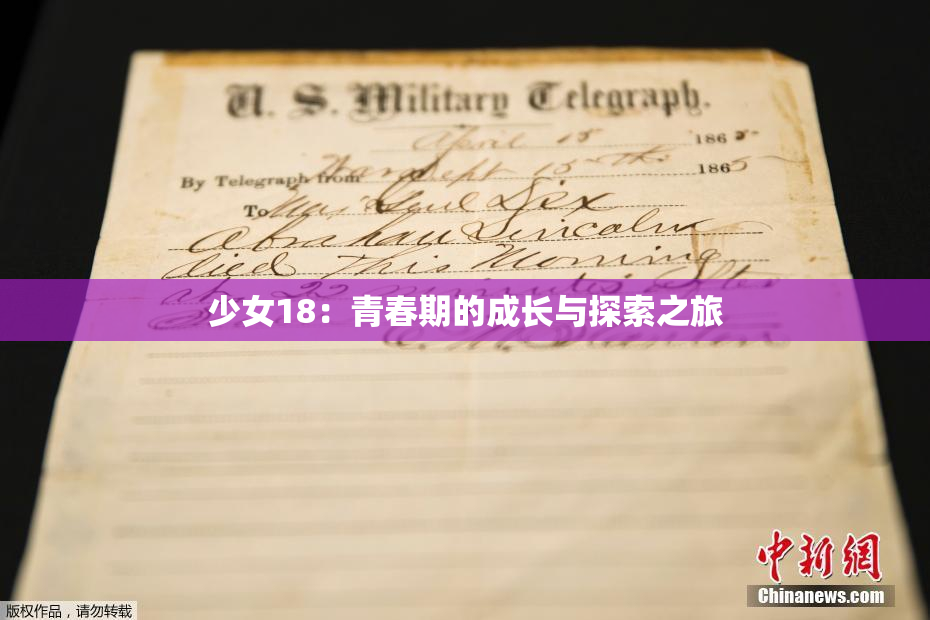 U. S. Military Telegraph.
April 15 1865-
By Telegraph from War Dept 15th 1865
To Maj Genl Dix
Abraham Lincoln
died This Morning
at 22 minutes after
少女18：青春期的成长与探索之旅
E. M. Stanton
中新网
Chinanews.com
版权作品，请勿转载